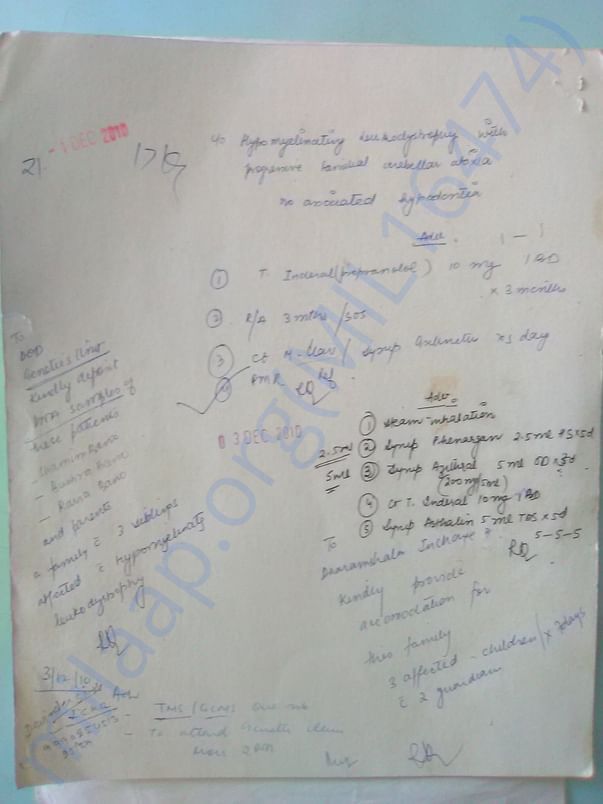 - 1 DEC 2010
21.
c/o Hypomyelinating leukodystrophy with
progressive familial cerebellar ataxia
no associated hypodontia
Adv.
1 — 1
① T. Inderal (propranolol) 10 mg 1 BD
x 3 months
② R/A 3 mths / SOS
③ Ct / Syrup x 3 day
PMR
To
HOD
Genetics Unit
Kindly deposit
DNA samples of
these patients
- Shamim Bano
- Bushra Bano
- Rania Bano
and parents
a family c̄ 3 siblings
affected c̄ hypomyelinating
leukodystrophy
0 3 DEC 2010
Adv.
① Steam inhalation
2.5ml ② Syrup Phenergan 2.5 ml HS x 5d
5ml ③ Syrup Azithral 5 ml OD x 3d
(200mg/5ml)
④ Ct T. Inderal 10mg 1 BD
⑤ Syrup Asthalin 5 ml TDS x 5d
5-5-5
To
Dharamshala Incharge
Kindly provide
accomodation for
this family
3 affected children / x 7 days
c̄ 2 guardian
3/12/10
- TMS/GCMS
- To attend Genetic
2 PM
milaap.org(MIL16474)